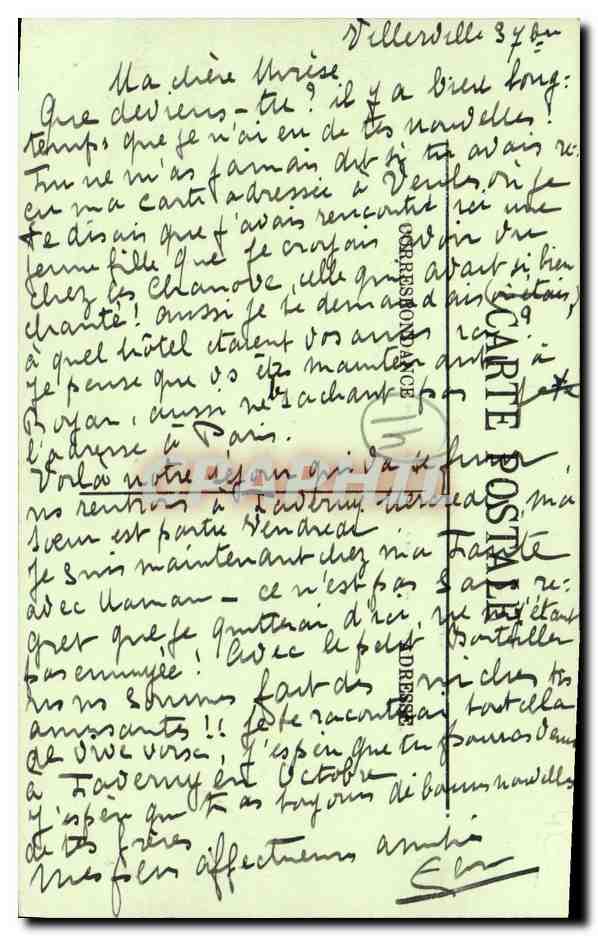 Villerville 3 7bre
Ma chère
Que deviens-tu? il y a bien long-
temps que je n'ai eu de tes nouvelles!
Tu ne m'as jamais dit si tu avais re-
çu ma carte adressée à Veules où je
te disais que j'avais rencontré ici une
jeune fille que je croyais avoir vu
chez les Chanove, elle qui avait si bien
chanté! aussi je te demandais
à quel hôtel étaient vos amis ici?
Je pense que vs êtes maintenant à
Royan, aussi ne sachant pas
l'adresse à Paris.
Voilà notre séjour qui va se finir
ns rentrons à Taverny Mercredi, ma
soeur est partie Vendredi
Je suis maintenant chez ma Tante
avec Maman - ce n'est pas sans re-
gret que je quitterai d'ici, ne m'étant
pas ennuyée! Avec le petit
ns ns sommes fait des niches très
amusantes!! Je te raconterai tout cela
de vive voix, j'espère que tu pourras venir
à Taverny en Octobre
J'espère que tu as toujours de bonnes nouvelles
de tes frères
Mes plus affectueuses amitiés
14
CARTE POSTALE
CORRESPONDANCE
ADRESSE